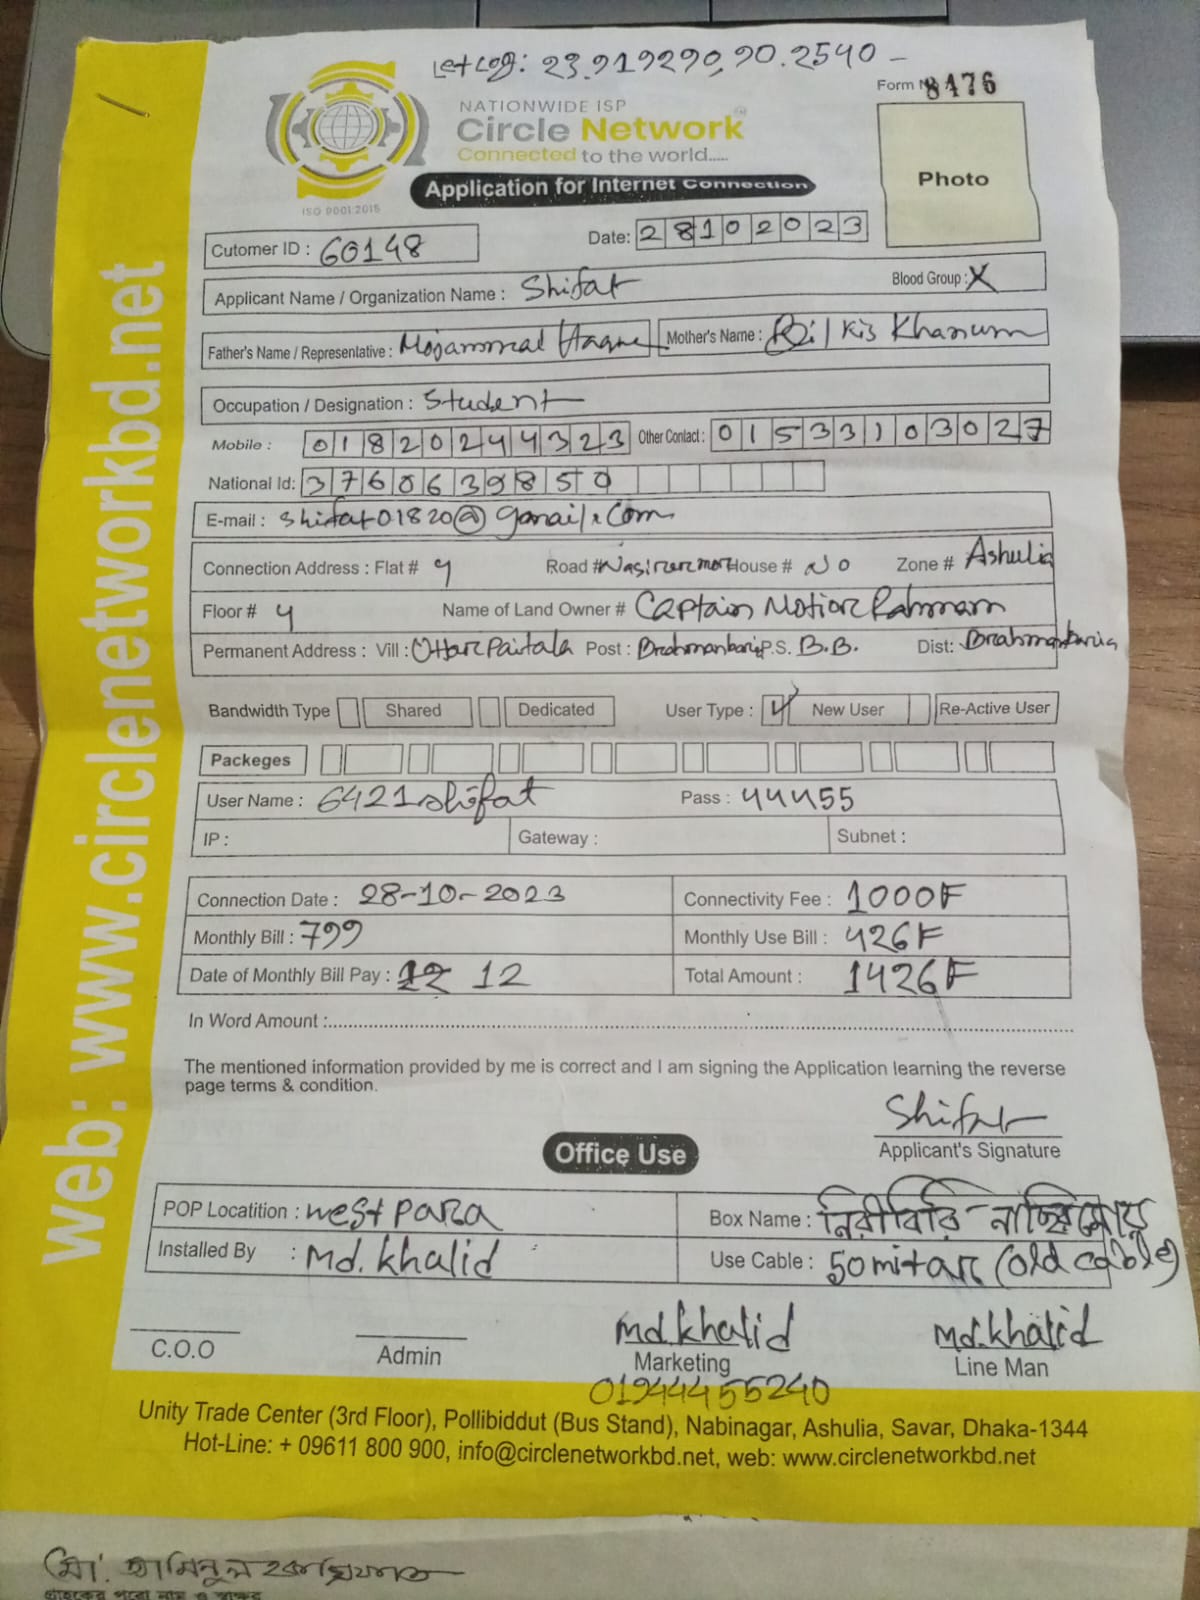 Let Log: 23.919290,90.2540
Form No 8476
NATIONWIDE ISP
Circle Network
Connected to the world.....
ISO 9001:2015
Application for Internet Connection
Photo
Cutomer ID : 60148
Date: 28102023
Applicant Name / Organization Name : Shifat
Blood Group : X
Father's Name / Representative : Mojammeal Haque
Mother's Name : Bilkis Khanum
Occupation / Designation : Student
Mobile : 01820244323 Other Contact : 01533103027
National Id: 3760639850
E-mail : shifat01820@gmail.com
Connection Address : Flat # 4 Road # Nasirermor House # No Zone # Ashulia
Floor # 4 Name of Land Owner # Captain Motior Rahman
Permanent Address : Vill : Uttar Pairtala Post : Brahmanbaria P.S. B.B. Dist: Brahmanbaria
Bandwidth Type Shared Dedicated User Type : ✓ New User Re-Active User
Packeges
User Name : 6421shifat Pass : 444455
IP : Gateway : Subnet :
Connection Date : 28-10-2023 Connectivity Fee : 1000F
Monthly Bill : 799 Monthly Use Bill : 426F
Date of Monthly Bill Pay : 12 Total Amount : 1426F
In Word Amount :
The mentioned information provided by me is correct and I am signing the Application learning the reverse
page terms & condition.
Shifat
Applicant's Signature
Office Use
POP Locatition : west para Box Name : নিরীবিলি
Installed By : Md. Khalid Use Cable : 50 mitar (old cable)
md.khalid md.khalid
C.O.O Admin Marketing Line Man
01944455240
Unity Trade Center (3rd Floor), Pollibiddut (Bus Stand), Nabinagar, Ashulia, Savar, Dhaka-1344
Hot-Line: + 09611 800 900, info@circlenetworkbd.net, web: www.circlenetworkbd.net
web: www.circlenetworkbd.net
মো: আমিনুল হক সিফাত
গ্রাহকের পুরো নাম ও স্বাক্ষর